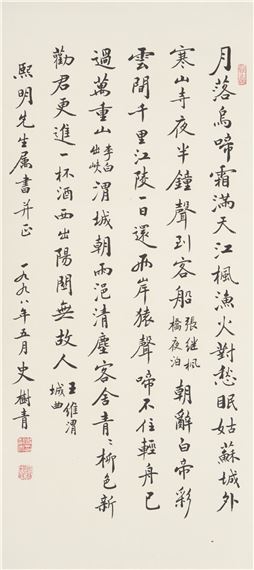 月落烏啼霜滿天江楓漁火對愁眠姑蘇城外
寒山寺夜半鐘聲到客船張继楓橋夜泊朝辭白帝彩
雲間千里江陵一日還兩岸猿聲啼不住輕舟已
過萬重山李白出峽渭城朝雨浥清塵客舍青〻柳色新
勸君更進一杯酒西出陽關無故人王維渭城曲
熙明先生属書并正 一九九八年五月史樹青